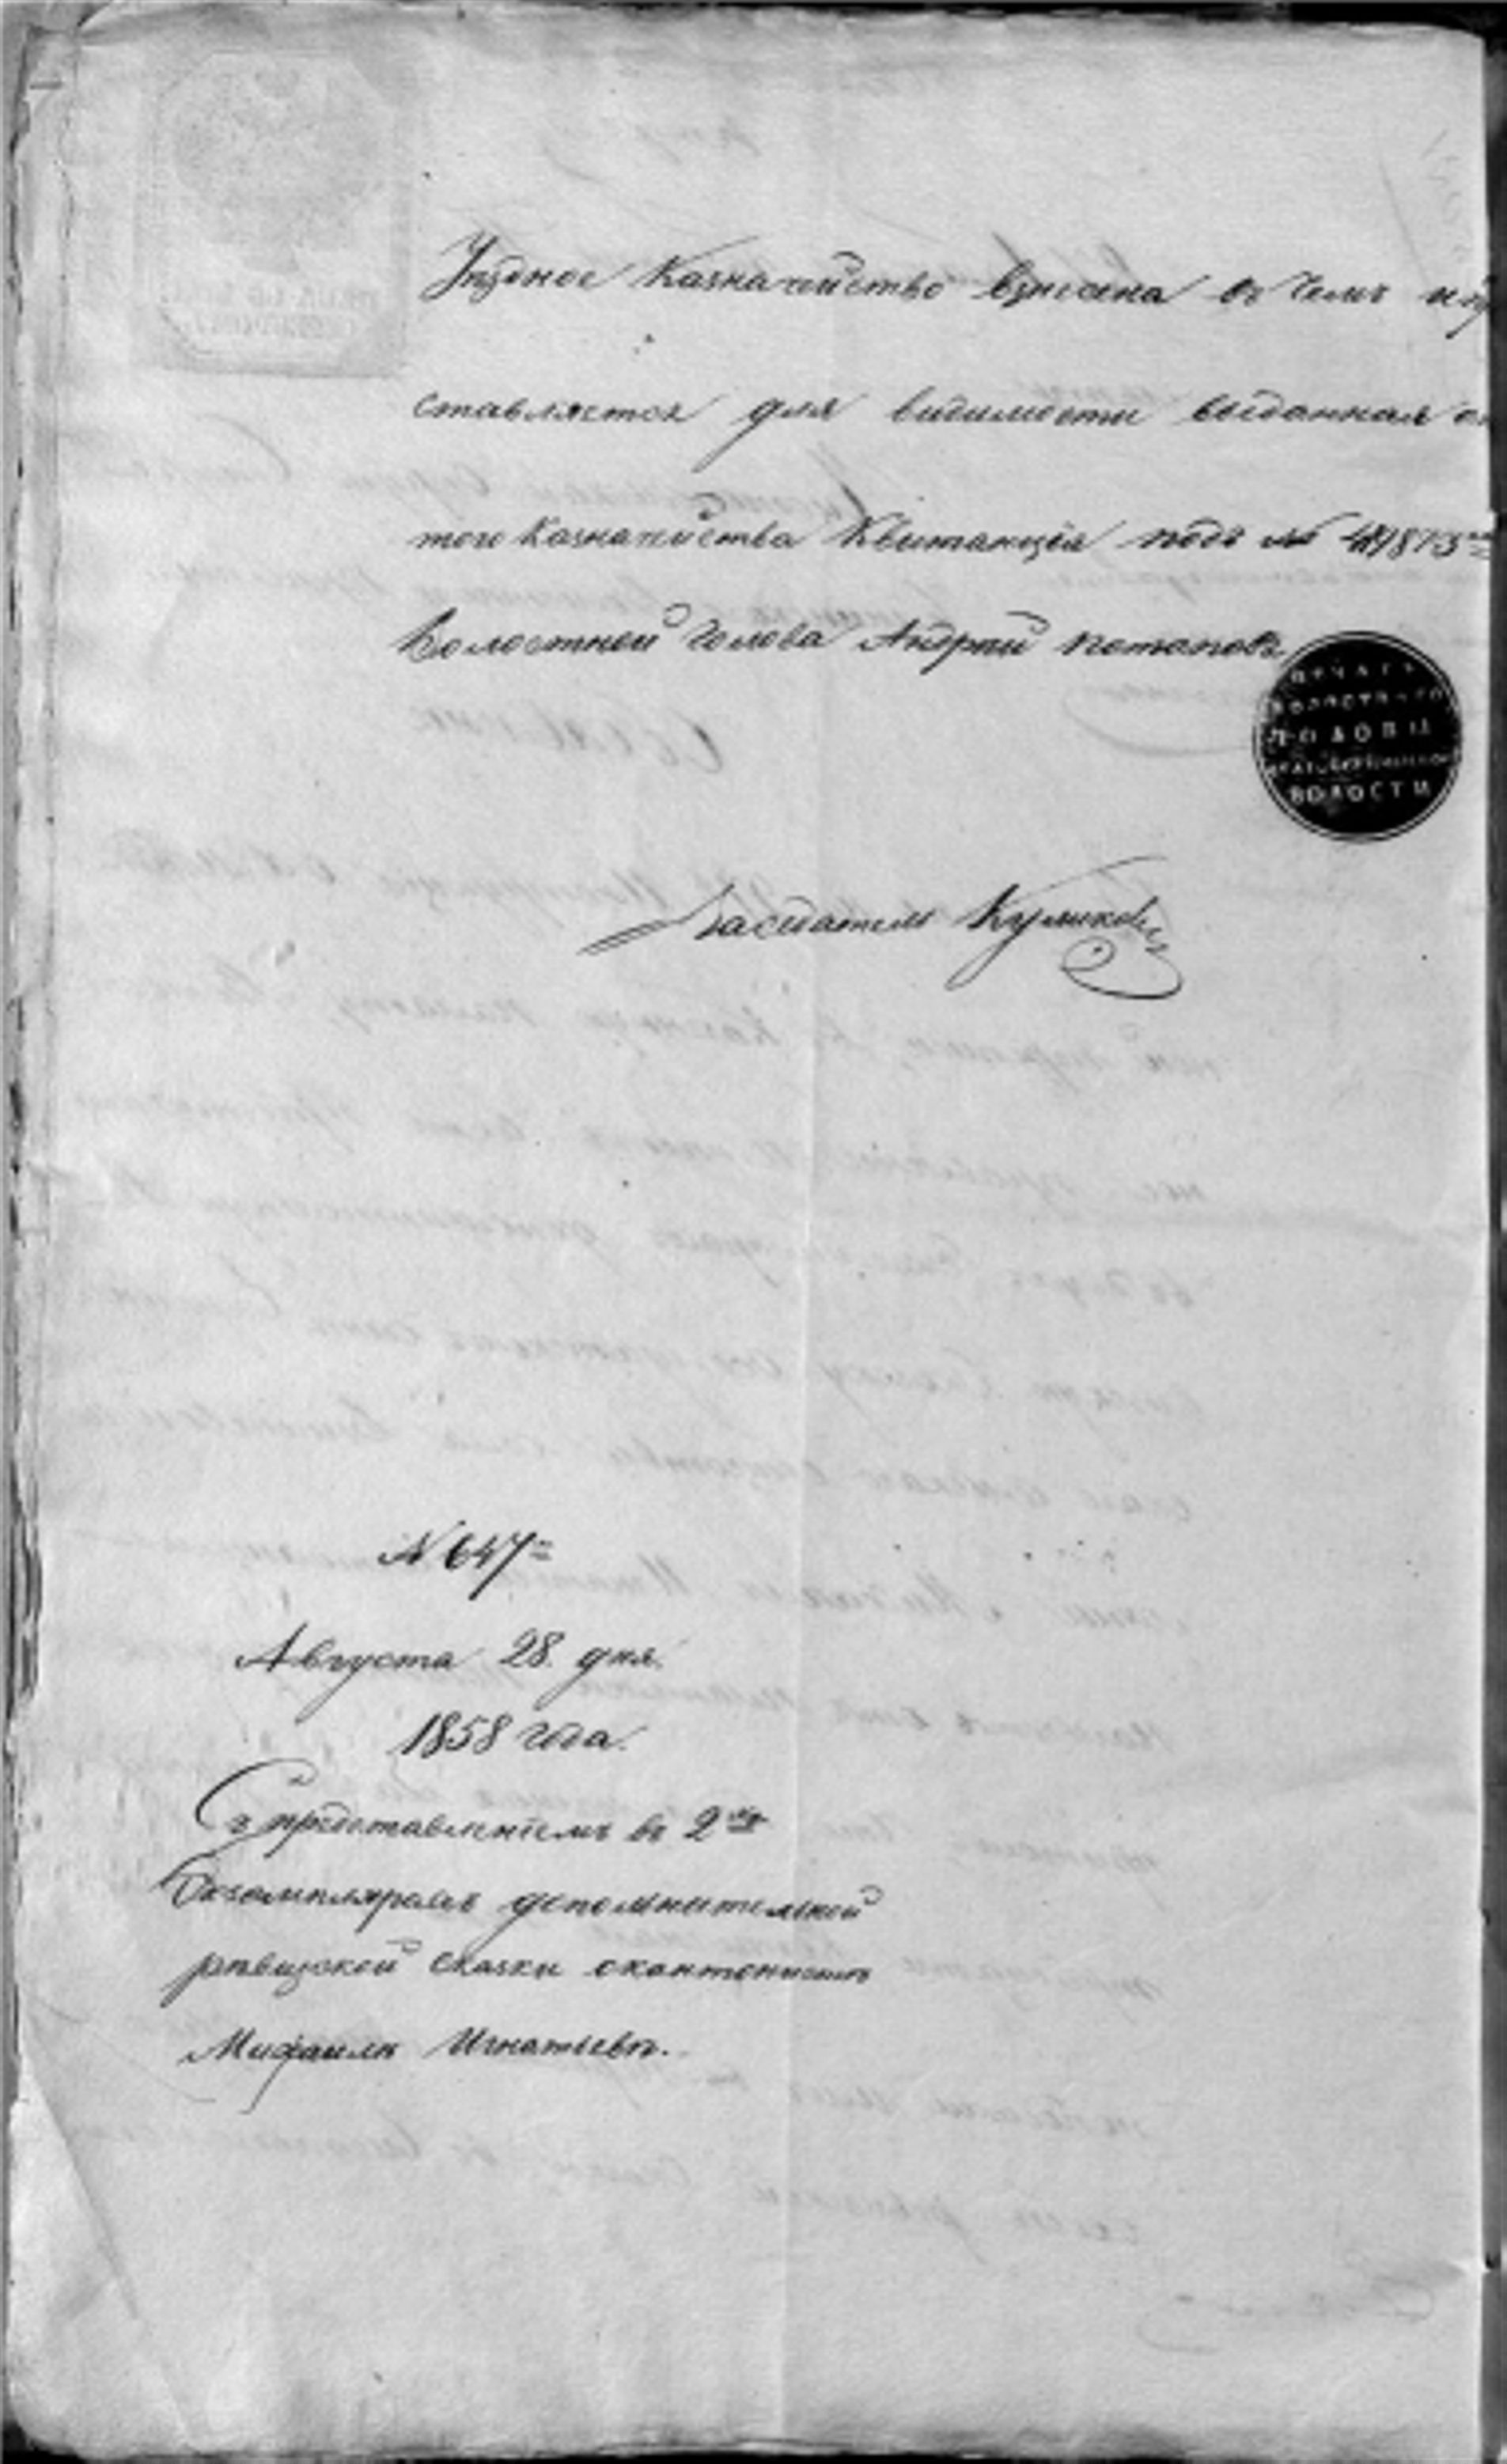 Уѣздное Казначейство взнесена въ чемъ и пр
ставляется для видимости выданная от
того Казначейства Квитанція подъ №
Волостной Голова Андрей Потаповъ
ПЕЧАТЬ
ВОЛОСТНАГО
ГОЛОВЫ
ВОЛОСТИ
Засѣдатель Куликовъ
№ 647
Августа 28. дня.
1858 года.
Съ представленіемъ въ 2хъ
Экземплярахъ дополнительной
ревизской сказки о кантонистѣ
Михаилѣ Игнатьевѣ.